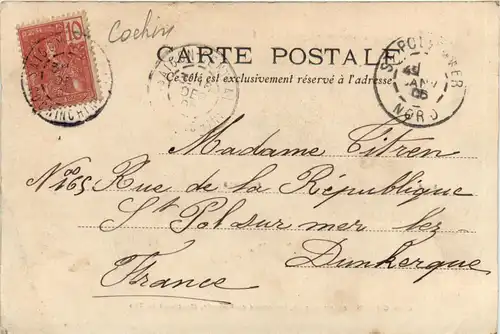 Cochin
10
CARTE POSTALE
Ce côté est exclusivement réservé à l'adresse
NORD
Madame Titren
N° 165 Rue de la République
St Pol sur mer lez
Dunkerque
France